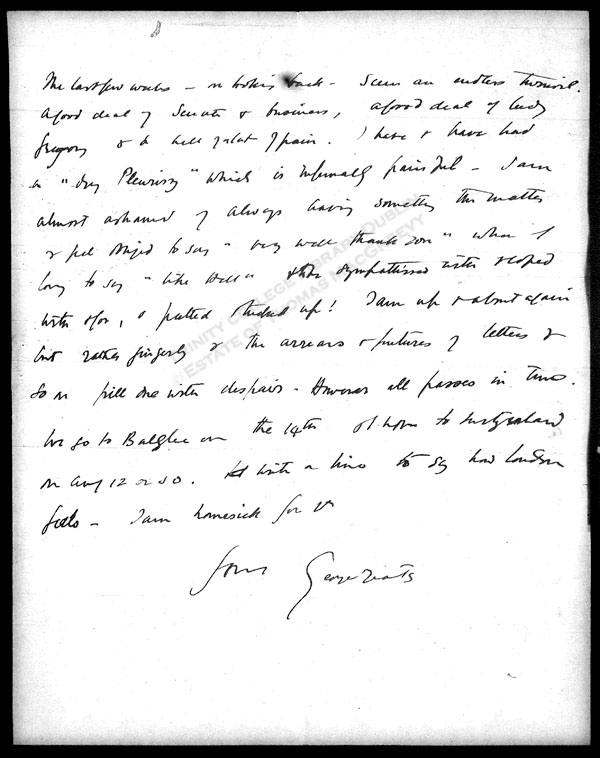 The last few weeks – on looking back – seem an endless turmoil.
A good deal of Senate & business, a good deal of Lady
Gregory & a hell of a lot of pain. I have & have had
a "dry Pleurisy" which is infernally painful – I am
almost ashamed of always having something the matter
& feel obliged to say "very well thank you" when I
long to say "like Hell" & be sympathised with &
with &
but rather gingerly & the arrears & futures of letters &
so on fill one with despair – However all passes in time.
We go to Ballylee on the 14th & I hope to Switzerland
on Aug 12 or so. write a line to say how London
feels – I am homesick for it
Yours George Yeats
TRINITY COLLEGE LIBRARY DUBLIN
ESTATE OF THOMAS MACGREEVY